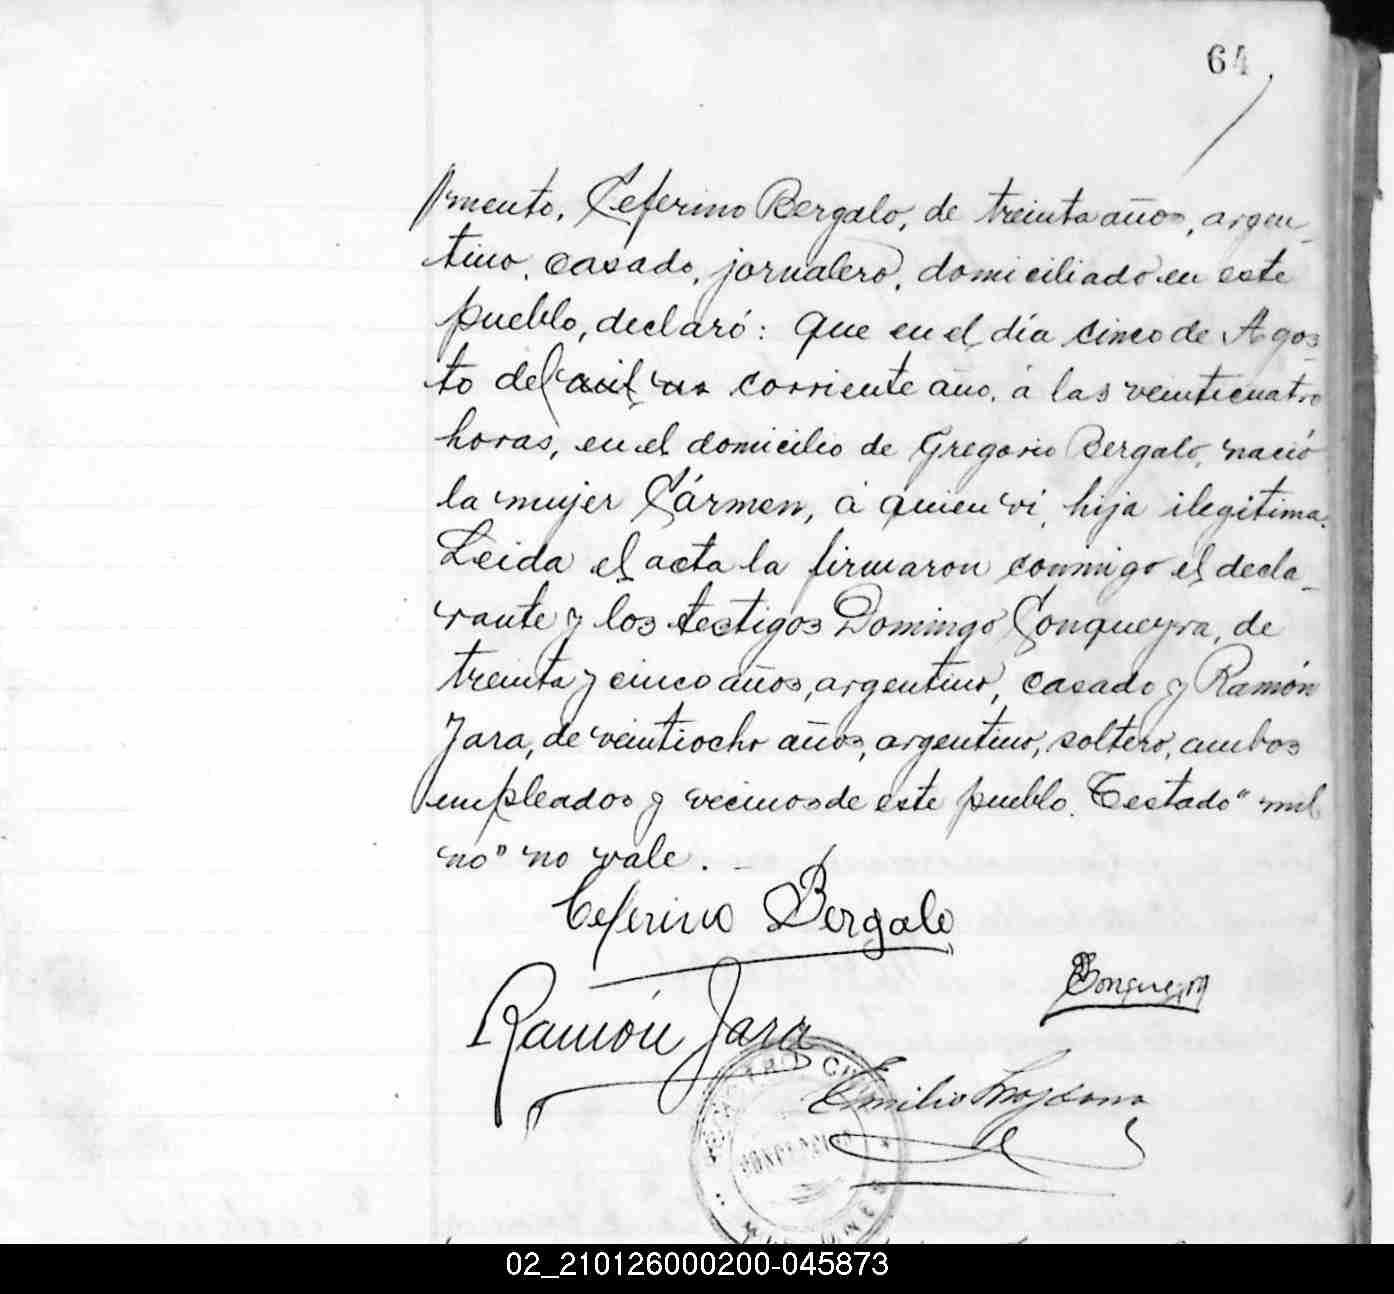 64
mento, Ceferino Bergalo, de treinta años, argen-
tino, casado, jornalero, domiciliado en este
pueblo, declaró: Que en el día cinco de Agos-
to del corriente año, á las veinticuatro
horas, en el domicilio de Gregorio Bergalo, nació
la mujer Cármen, á quien vi, hija ilegitima.
Leida el acta la firmaron conmigo el decla-
rante y los testigos Domingo Conqueyra, de
treinta y cinco años, argentino, casado y Ramón
Jara, de veintiocho años, argentino, soltero, ambos
empleados y vecinos de este pueblo. Testado "mil
no" no vale. -
Ceferino Bergalo
Conqueyra
Ramón Jara
REGISTRO CIVIL
Emilio
CONCEPCION
MISIONES
02_210126000200-045873